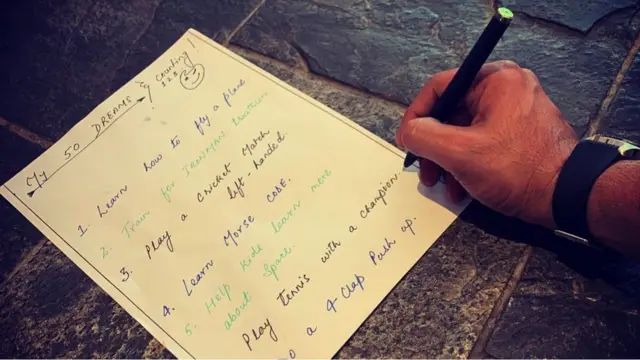 My 50 DREAMS & counting!
1 2 3
1. Learn how to fly a plane
2. Train for IRONMAN Triathlon
3. Play a Cricket Match
left-handed.
4. Learn Morse Code.
5. Help Kids learn more
about Space.
Play tennis with a champion.
a 4-Clap Push up.